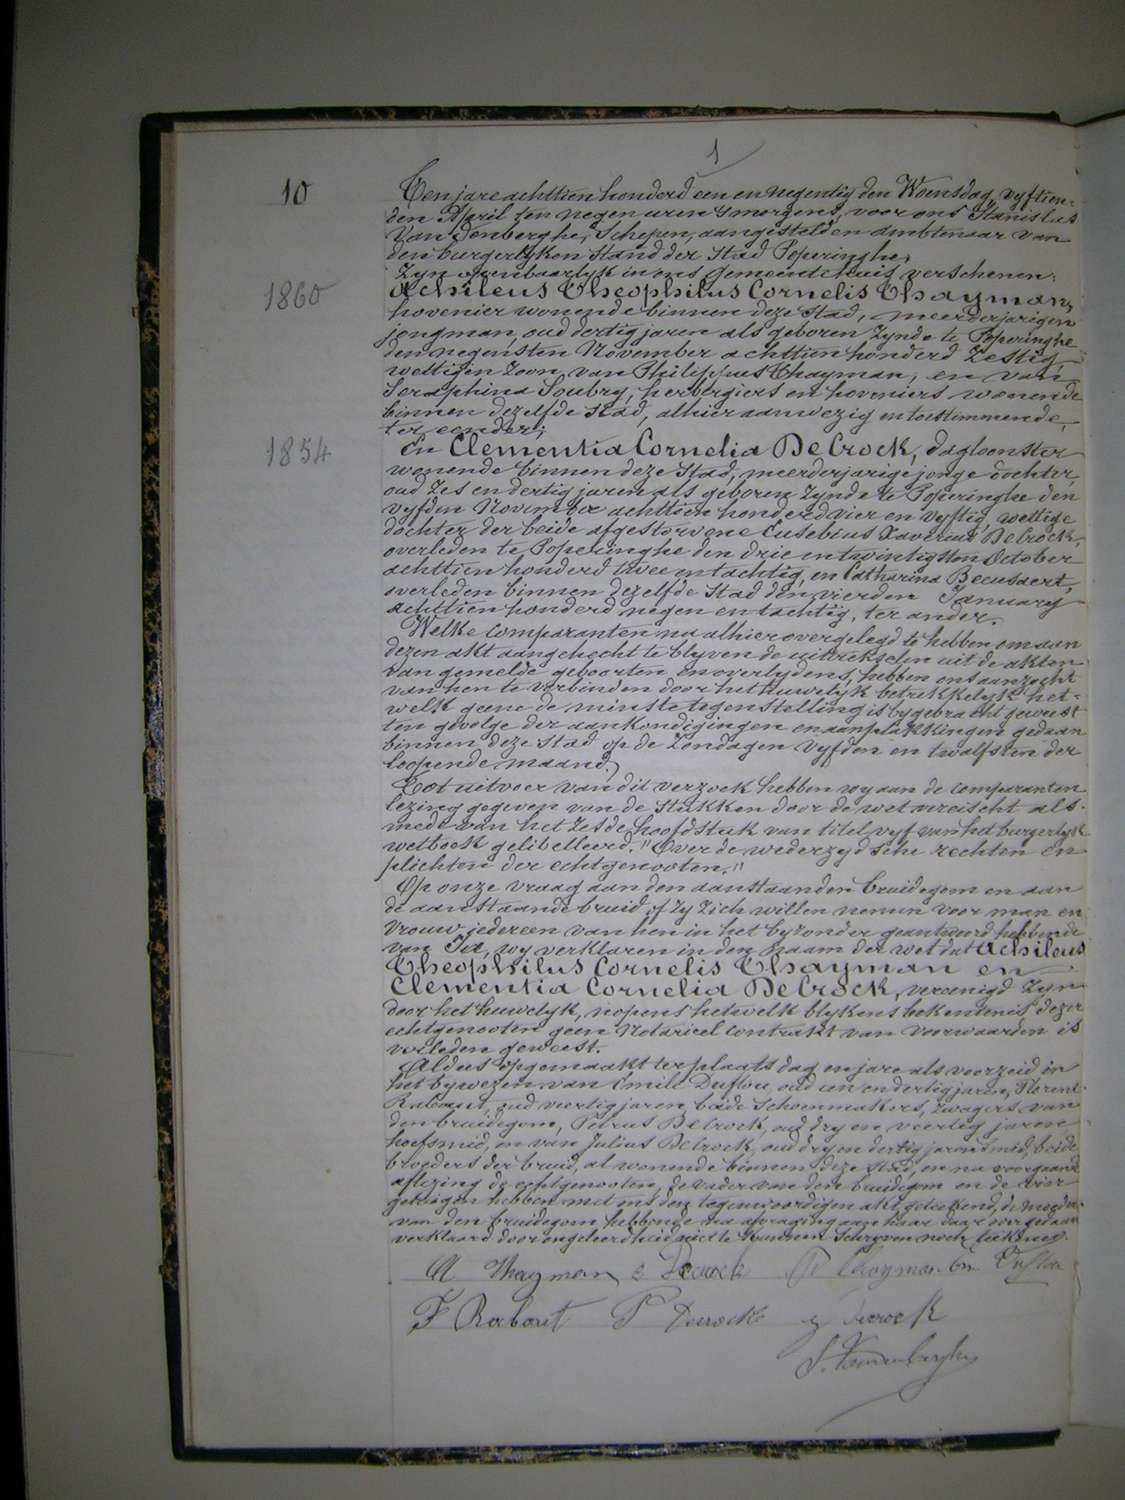 1
10
Ten jare achttien honderd een en negentig den Woensdag, vyftien-
den April ten negen uren 's morgens, voor ons Stanislus
Van Denberghe, Schepen, aangestelden ambtenaar van
den burgerlyken stand der Stad Poperinghe,
Zyn openbaarlyk in ons gemeentehuis verschenen:
1860
Achileus Theophilus Cornelis Thayman,
hovenier wonende binnen deze Stad, meerderjarigen
jongman, oud dertig jaren als geboren zynde te Poperinghe
den negensten November achttien honderd zestig,
wettigen zoon van Philippus Thayman, en van
Seraphina Soubry, herbergiers en hoveniers wonende
binnen dezelfde stad, alhier aanwezig en toestemmende,
ter eender;
1854
En Clementia Cornelia DeCrock, dagloonster
wonende binnen deze Stad, meerderjarige jonge dochter,
oud zes en dertig jaren als geboren zynde te Poperinghe den
vyfden November achttien honderd vier en vyftig, wettige
dochter der beide afgestorvene Eusebius Xaverius DeCrock,
overleden te Poperinghe den drie en twintigsten October
achttien honderd twee en tachtig, en Catharina Beeusaert,
overleden binnen dezelfde Stad den vierden January
achttien honderd negen en tachtig, ter ander.
Welke comparanten na alhier overgelegd te hebben om aan
dezen akt aangehecht te blyven de uittrekselen uit de akten
van gemelde geboorten en overlydens, hebben ons aanzocht
van hen te verbinden door het huwelyk betrekkelyk het-
welk geene de minste tegenstelling is bygebracht geweest
ten gevolge der aankondigingen en aanplakkingen gedaan
binnen deze stad op de Zondagen vyfden en twalfsten der
loopende maand.
Tot uitvoer van dit verzoek hebben wy aan de comparanten
lezing gegeven van de stukken door de wet vereischt als-
mede van het zesde hoofdstuk van titel vyf van het burgerlyk
wetboek gelibelleerd. "Over de wederzydsche rechten en
plichten der echtgenooten."
Op onze vraag aan den aanstaanden bruidegom en aan
de aanstaande bruid of zy zich willen nemen voor man en
vrouw, iedereen van hen in het byzonder geantwoord hebbende
van Ja, wy verklaren in den naam der wet dat Achileus
Theophilus Cornelis Thayman en
Clementia Cornelia DeCrock, vereenigd zyn
door het huwelyk, nopens hetwelk blykens bekentenis dezer
echtgenooten geen Notarieel Contrakt van voorwaarden is
verleden geweest.
Aldus opgemaakt ter plaats dag en jare als voorzeid in
het bywezen van Emile Duflou, oud een en dertig jaren, Florent
Rabaut, oud veertig jaren, beide schoenmakers, zwagers van
den bruidegom, Petrus DeCrock, oud dry en veertig jaren
hoefsmid, en van Julius DeCrock, oud dry en dertig jaren smid, beide
broeders der bruid, al wonende binnen deze stad, en na voorgaande
aflezing de echtgenooten, de vader van den bruidegom en de vier
getuigen hebben met ons den tegenwoordigen akt geteekend, de moeder
van den bruidegom hebbende na afvraging aan haar daar over gedaan
verklaard door ongeleerdheid niet te kunnen schryven noch teekenen.
A Thayman C Decrock P Thayman Em Duflou
F Rabaut P Decrock J Decrock
S. Vandenberghe